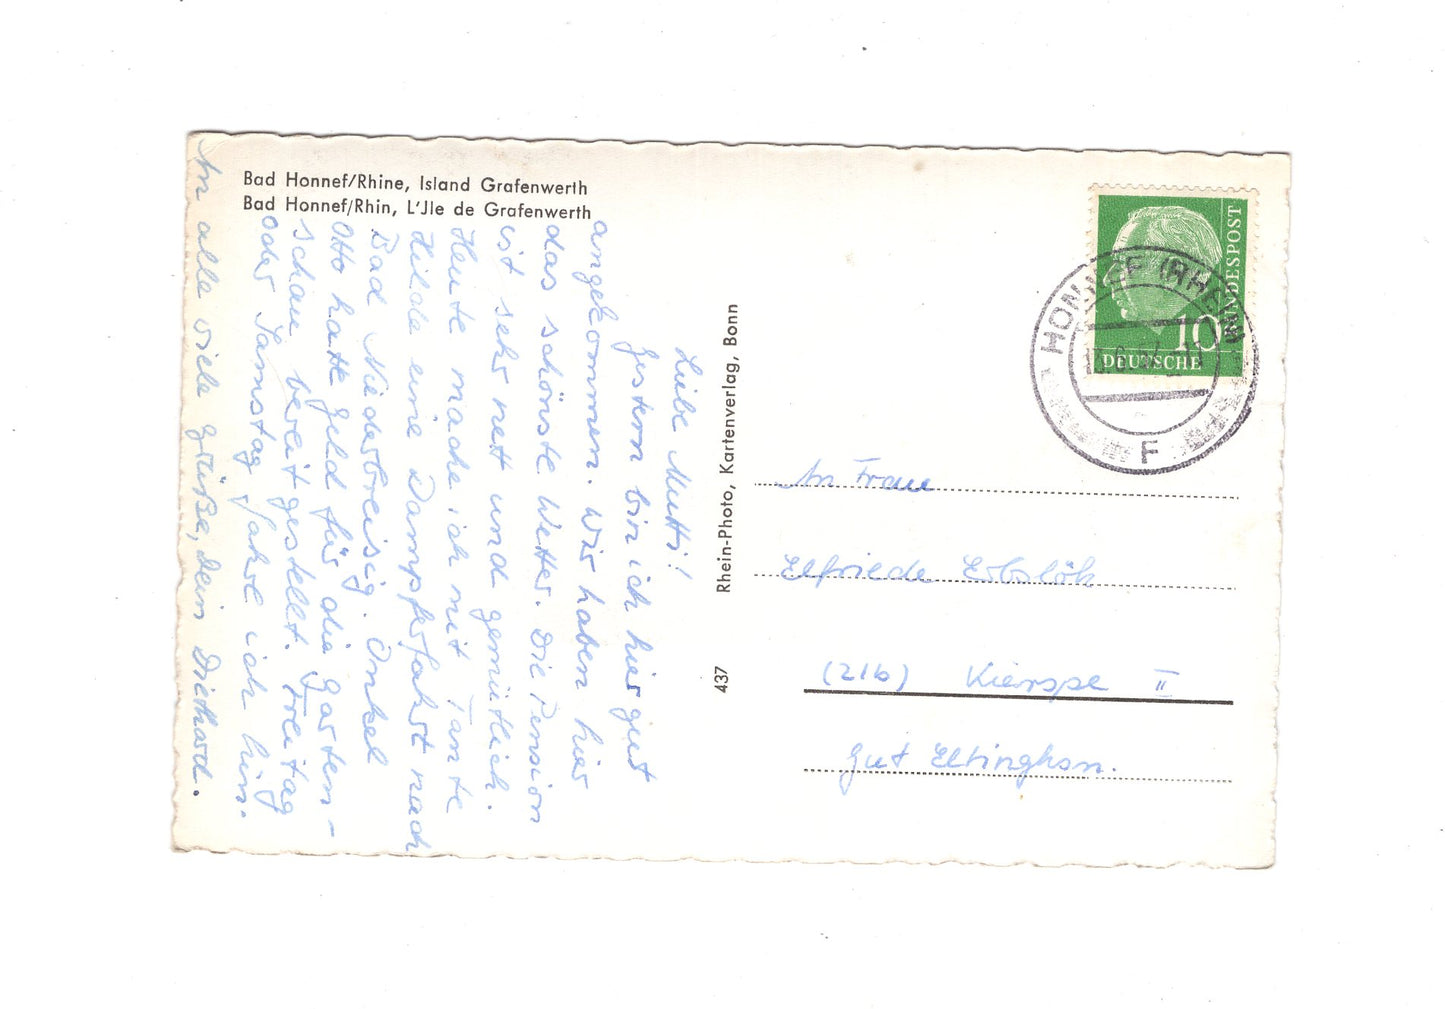 Bad Honnef/Rhine, Island Grafenwerth
Bad Honnef/Rhin, L'Jle de Grafenwerth
Liebe Mutti!
Gestern bin ich hier gut
angekommen. Wir haben hier
das schönste Wetter. Die Pension
ist sehr nett und gemütlich.
Heute mache ich mit Tante
Hilde eine Dampferfahrt nach
Bad Niederbreisig. Onkel
Otto hatte Geld für die Garten-
schau bereitgestellt. Freitag
oder Samstag fahre ich hin.
An alle viele Grüße, Dein Diethard.
Rhein-Photo, Kartenverlag, Bonn
437
BUNDESPOST
10
DEUTSCHE
HONNEF (RHEIN)
F
An Frau
Elfriede Erbslöh
(21b) Kierspe II
Gut Eltinghsn.